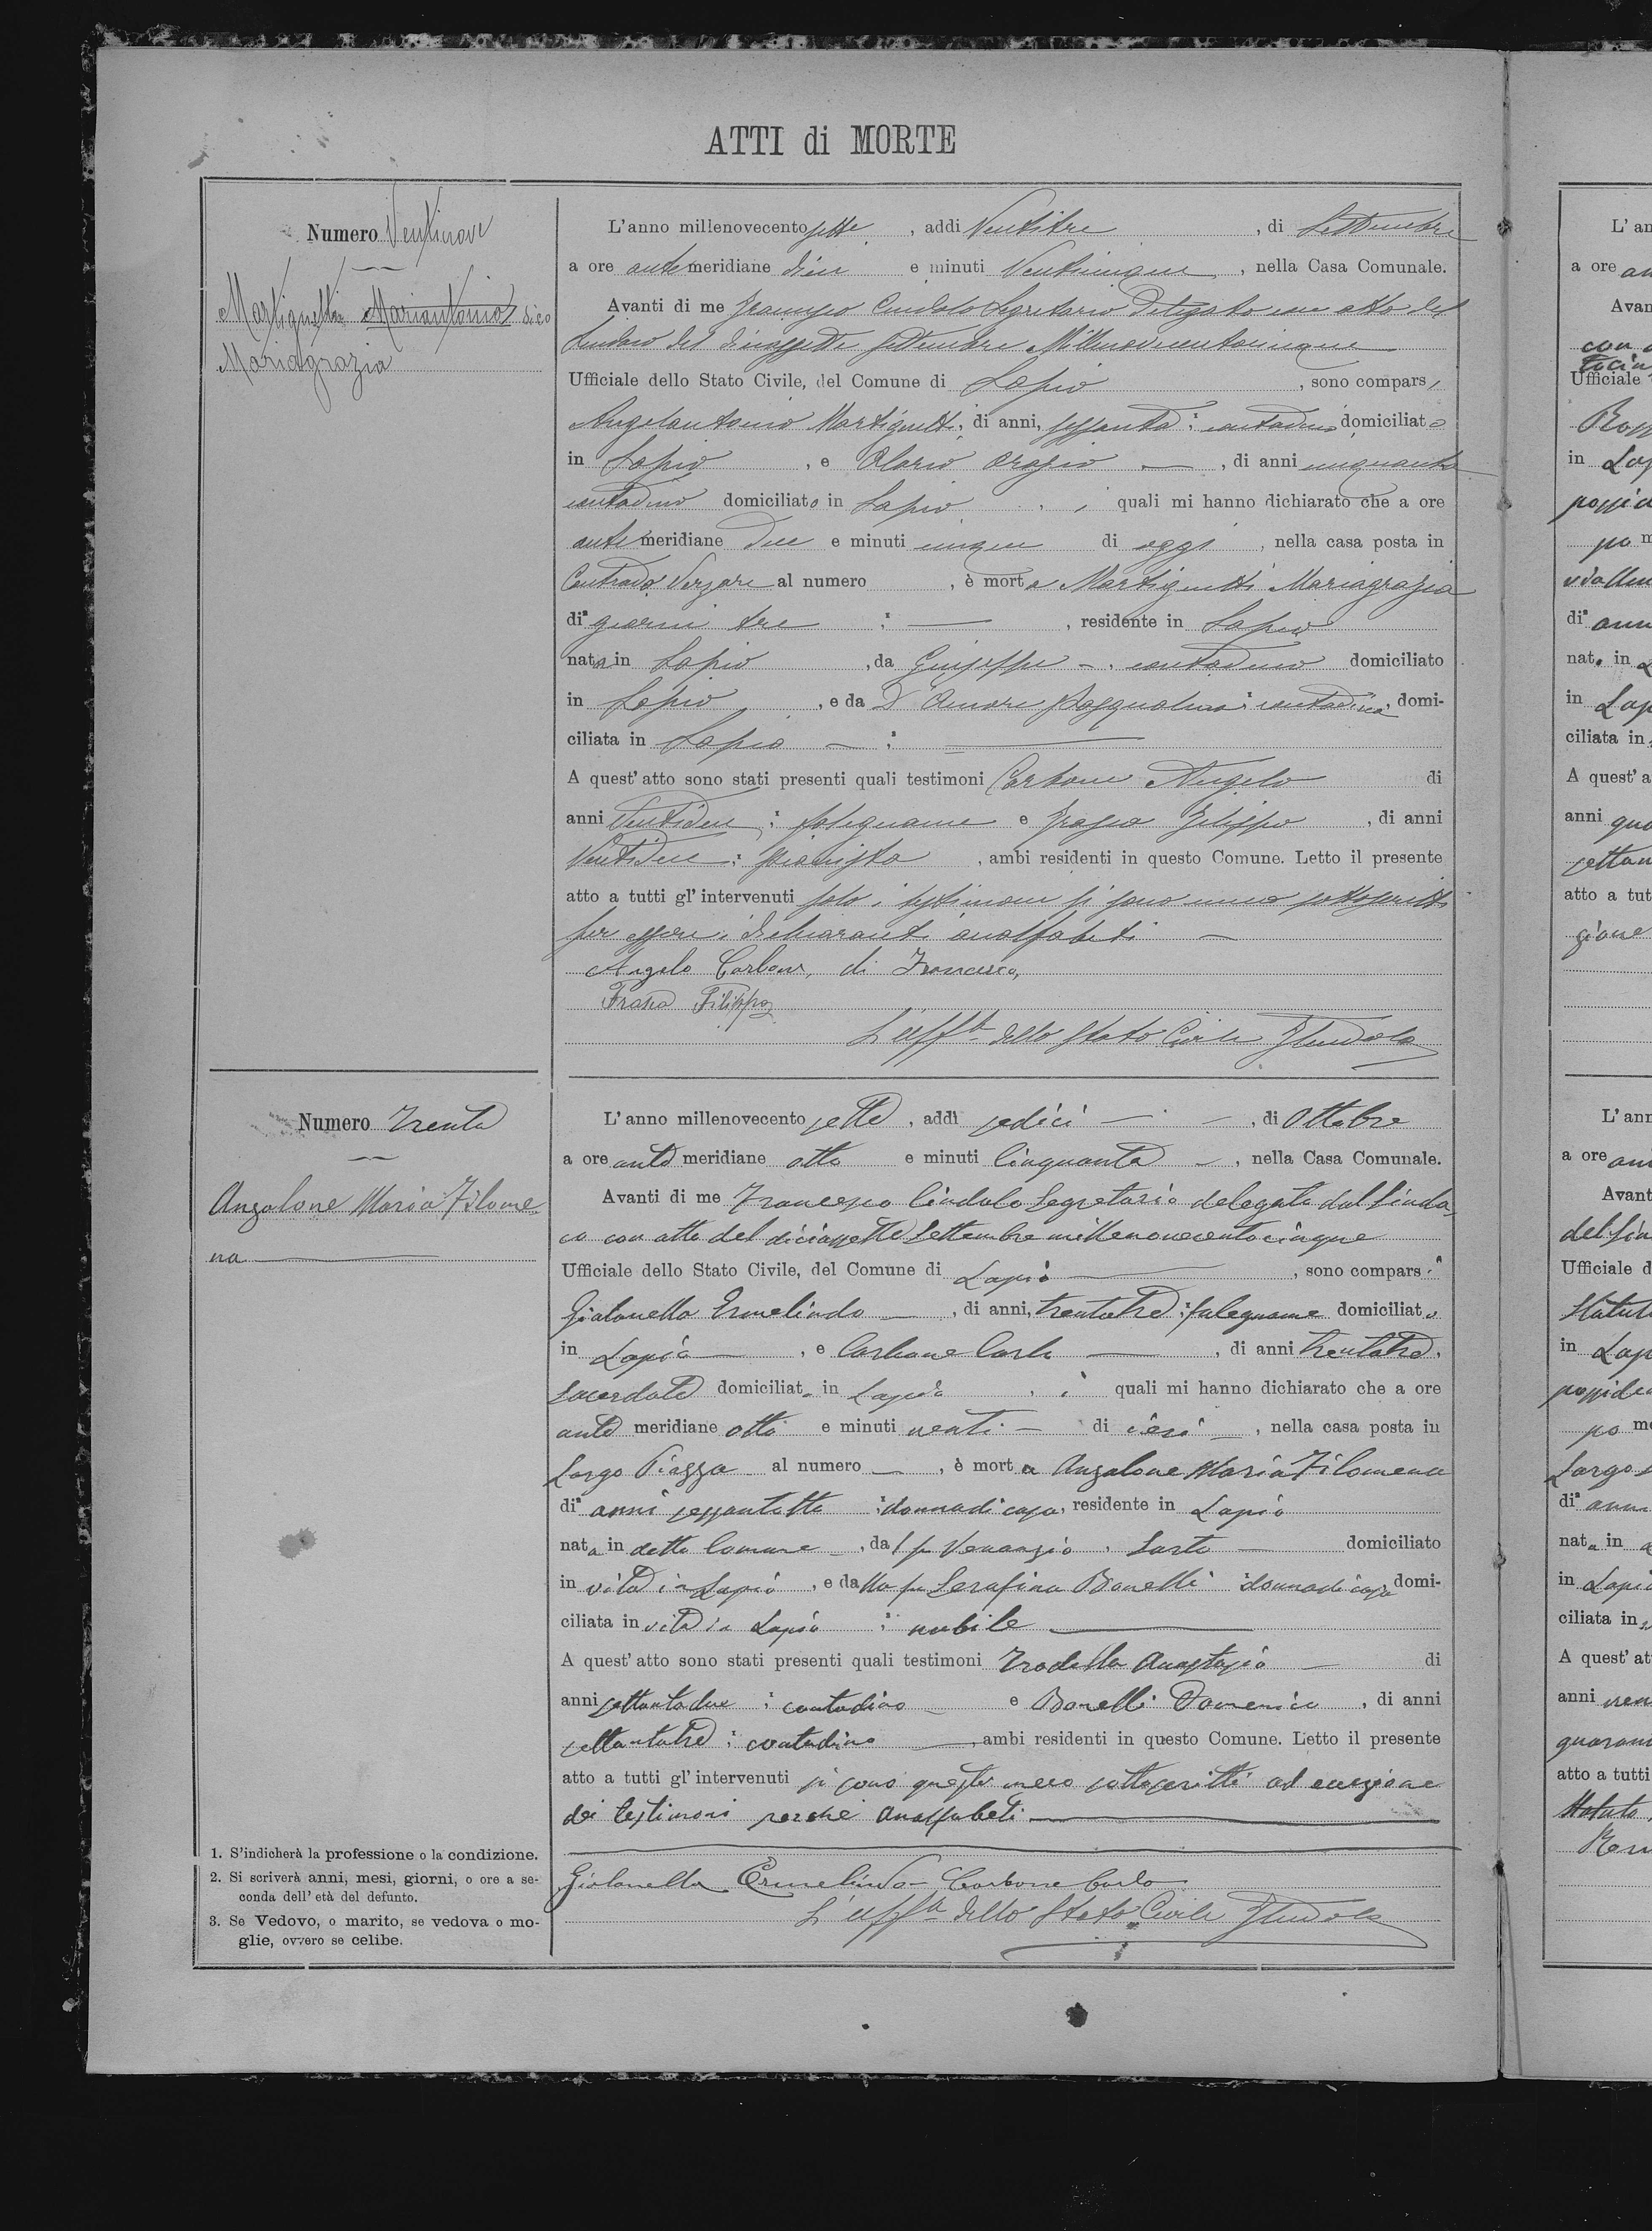 ATTI di MORTE
Numero Ventinove
Martignetti Mariantonia dico
Mariagrazia
L'anno millenovecento sette, addì Ventitre, di Settembre
a ore antemeridiane dieci e minuti Venticinque, nella Casa Comunale.
Avanti di me Francesco Cindolo Segretario Delegato con atto del
Sindaco del diciassette settembre Millenovecentocinque
Ufficiale dello Stato Civile, del Comune di Lapio, sono comparsi
Angelantonio Martignetti, di anni, sessanta; contadino domiciliato
in Lapio, e Olario Orazio —, di anni cinquanta
contadino domiciliato in Lapio, i quali mi hanno dichiarato che a ore
antimeridiane due e minuti cinque di oggi, nella casa posta in
Contrada Verzare al numero, è morta Martignetti Mariagrazia
di giorni tre; —, residente in Lapio
nata in Lapio, da Giuseppe —, contadino domiciliato
in Lapio, e da D'Amore Pasqualina; contadina, domi-
ciliata in Lapio —; —
A quest'atto sono stati presenti quali testimoni Carbone Angelo di
anni Ventidue; falegname e Frasca Filippo, di anni
Ventidue; , ambi residenti in questo Comune. Letto il presente
atto a tutti gl'intervenuti solo i testimoni si sono meco sottoscritti
per essere i dichiaranti analfabeti —
Angelo Carbone, di Francesco,
Frasca Filippo
L'Uff.le dello Stato Civile FCindolo
Numero Trenta
Anzalone Maria Filome-
na —
L'anno millenovecento sette, addì sedici —, di Ottobre
a ore antemeridiane otto e minuti Cinquanta —, nella Casa Comunale.
Avanti di me Francesco Cindolo Segretario delegato dal Sinda-
co con atto del diciassette Settembre millenovecentocinque
Ufficiale dello Stato Civile, del Comune di Lapio —, sono comparsi
Gialonella Ermelindo —, di anni, trentatre; falegname domiciliato
in Lapio —, e Carbone Carlo —, di anni trentatre,
Sacerdote domiciliato in Lapio, i quali mi hanno dichiarato che a ore
antemeridiane otto e minuti venti — di ieri —, nella casa posta in
Largo Piazza al numero —, è morta Anzalone Maria Filomena
di anni sessantotto; donna di casa, residente in Lapio
nata in detto Comune —, dal fu Venanzio, Sarto — domiciliato
in vita in Lapio, e dalla fu Serafina Bonelli donna di casa domi-
ciliata in vita in Lapio; nubile —
A quest'atto sono stati presenti quali testimoni Trodella Anastasio — di
anni settantadue; contadino — e Bonelli Domenico, di anni
settantatre; contadino —, ambi residenti in questo Comune. Letto il presente
atto a tutti gl'intervenuti si sono questi meco sottoscritti ad eccezione
dei testimoni perché analfabeti —
Gialonella Ermelindo — Carbone Carlo
L'Uff.le dello Stato Civile FCindolo
1. S'indicherà la professione o la condizione.
2. Si scriverà anni, mesi, giorni, o ore a se-
conda dell'età del defunto.
3. Se Vedovo, o marito, se vedova o mo-
glie, ovvero se celibe.